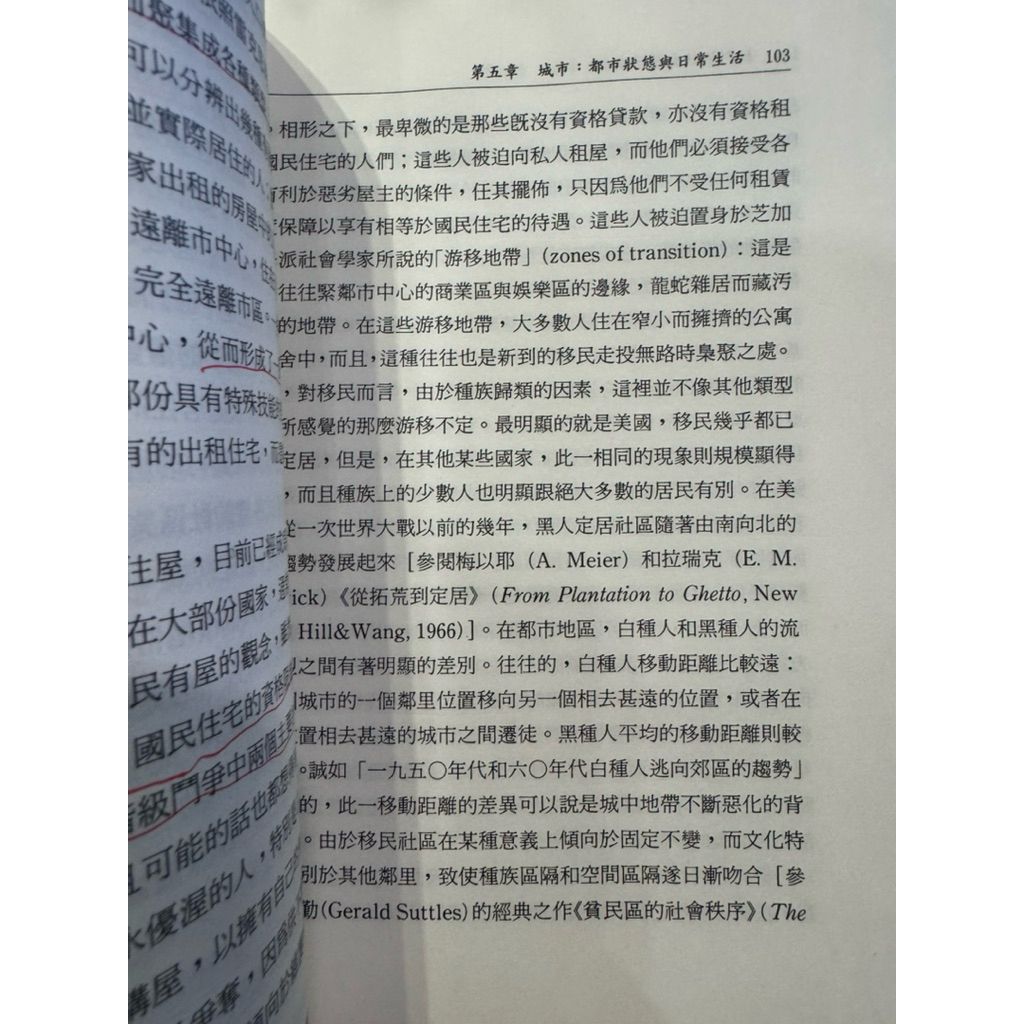 第五章 城市：都市狀態與日常生活 103
，相形之下，最卑微的是那些既沒有資格貸款，亦沒有資格租
國民住宅的人們；這些人被迫向私人租屋，而他們必須接受各
利於惡劣屋主的條件，任其擺佈，只因為他們不受任何租賃
保障以享有相等於國民住宅的待遇。這些人被迫置身於芝加
派社會學家所說的「游移地帶」(zones of transition)：這是
往往緊鄰市中心的商業區與娛樂區的邊緣，龍蛇雜居而藏汚
的地帶。在這些游移地帶，大多數人住在窄小而擁擠的公寓
舍中，而且，這種往往也是新到的移民走投無路時梟聚之處。
，對移民而言，由於種族歸類的因素，這裡並不像其他類型
所感覺的那麼游移不定。最明顯的就是美國，移民幾乎都已
定居，但是，在其他某些國家，此一相同的現象則規模顯得
，而且種族上的少數人也明顯跟絕大多數的居民有別。在美
從一次世界大戰以前的幾年，黑人定居社區隨著由南向北的
趨勢發展起來［參閱梅以耶（A. Meier）和拉瑞克（E. M.
ick）《從拓荒到定居》（From Plantation to Ghetto, New
Hill&Wang, 1966)］。在都市地區，白種人和黑種人的流
之間有著明顯的差別。往往的，白種人移動距離比較遠：
城市的一個鄰里位置移向另一個相去甚遠的位置，或者在
置相去甚遠的城市之間遷徒。黑種人平均的移動距離則較
。誠如「一九五〇年代和六〇年代白種人逃向郊區的趨勢」
的，此一移動距離的差異可以說是城中地帶不斷惡化的背
。由於移民社區在某種意義上傾向於固定不變，而文化特
別於其他鄰里，致使種族區隔和空間區隔遂日漸吻合［參
勤(Gerald Suttles)的經典之作《貧民區的社會秩序》（The
集成各種
可以分辨出幾種
並實際居住的人
家出租的房屋中
遠離市中心，住
完全遠離市區。
中心，從而形成了一
部份具有特殊技能
有的出租住宅，而
住屋，目前已經成
在大部份國家，
民有屋的觀念，
國民住宅的資格
階級鬥爭中兩個主
且可能的話也都想
水優渥的人，特別
購屋，以擁有自己
爭奪，因為
傾向於